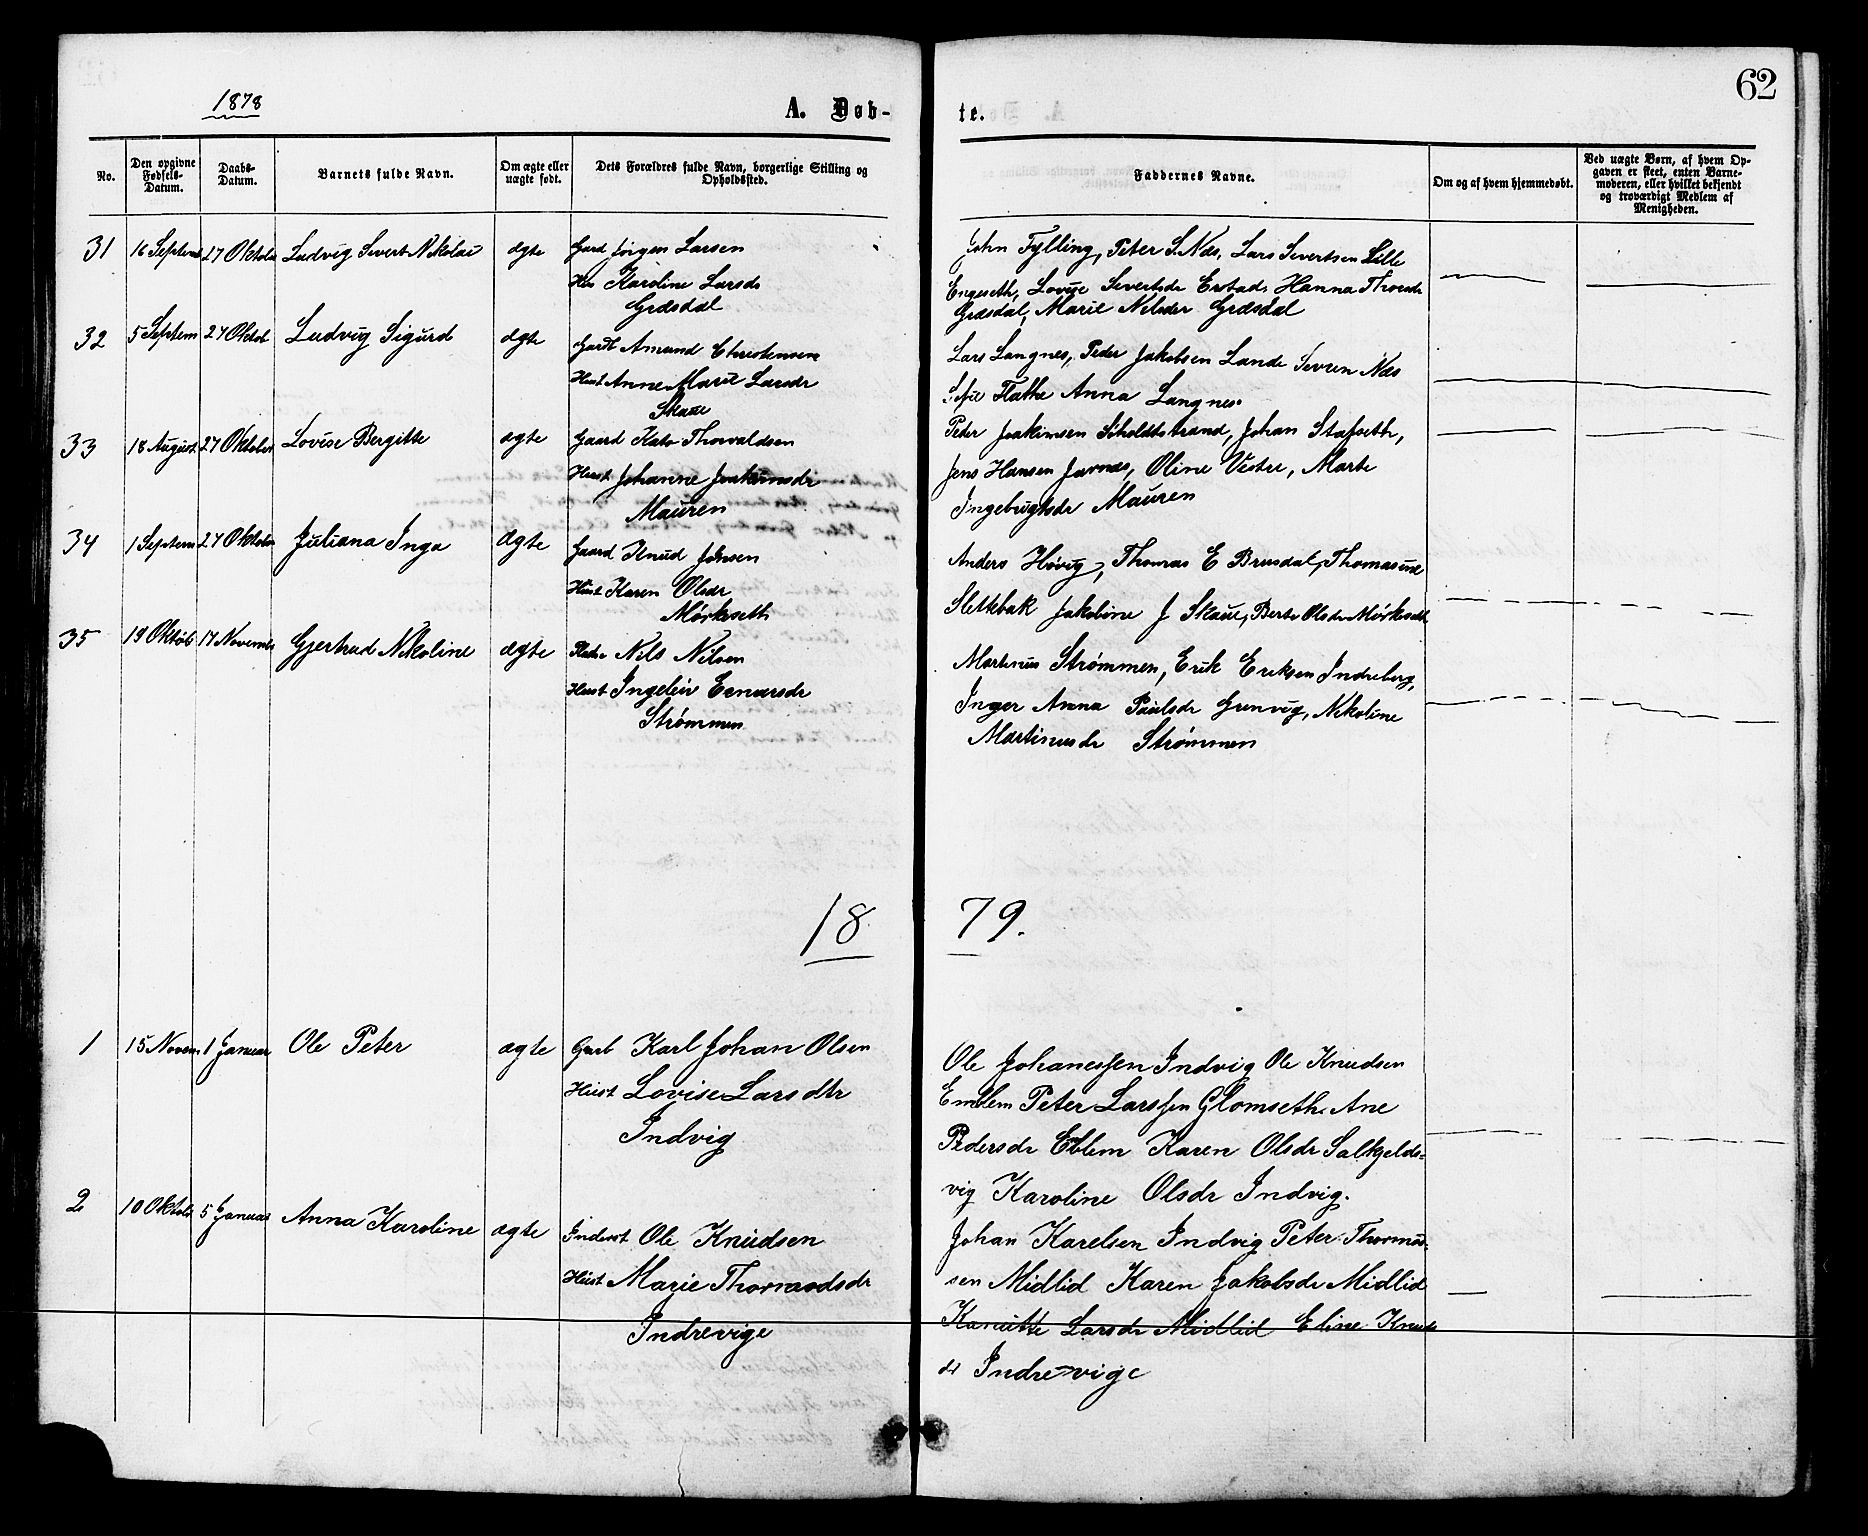 62
1878
A. Døb-
te.
No.
Den opgivne Fødsels-Datum.
Daabs-Datum.
Barnets fulde Navn.
Om ægte eller uægte født.
Dets Forældres fulde Navn, borgerlige Stilling og Opholdssted.
Faddernes Navne.
Om og af hvem hjemmedøbt.
Ved uægte Børn, af hvem Op-
gaven er skeet, enten Barne-
moderen, eller hvilket bekjendt
og troværdigt Medlem af
Menigheden.
31 16 Septem 27 Oktober Ludvig Sivert Nikolai ægte Gaard Jørgen Larsen
Karoline Larsdr
Græsdal
John Fylling, Peter S. Næs, Lars Sivertsen Lille
Engeseth, Lovise Sivertsdr Erstad, Hanna Thoresdr
Græsdal, Marie Nilsdr Græsdal
32 5 Septem 27 Oktob Ludvig Sigurd ægte Gard Amund Christensen
Hust Anne Marie Larsdr
Skaue
Lars Langnes, Peder Jakobsen Lande Severin Næs
Sofie Flathe Anna Langnes.
33 18 August 27 Oktober Lovise Bergitte ægte Gaard Kato Thorvaldsen
Hust Johanne Joakimsdr
Mauren
Peder Joakimsen Sholdtstrand, Johan Stafseth,
Jens Hansen Jarnæs, Oline Vestre, Marte
Ingebrigtsdr Mauren
34 1 Septem 27 Oktober Juliana Inga Ægte Gaard Knud Johnsen
Hust Karen Olsdr
Mørkeseth
Anders Høvig, Thomas E Brusdal, Thomasine
Slettebak Jakobine J Skaue, Berte Olsdr Mørkseth
35 19 Oktob 17 Novemb Gjertrud Nikoline ægte Nils Nilsen
Hust Ingeleiv Einarsdr
Strømmen
Martinus Strømmen, Erik Eriksen Indreberg,
Inger Anna Paulsdr Grønvig, Nikoline
Martinusdr Strømmen
18 79.
1 15 Novem 1 Januar Ole Peter ægte Garb Karl Johan Olsen
Hust Lovise Larsdtr
Indvig
Ole Johanessen Indvig Ole Knudsen
Emblem Peter Larssen Glomseth Ane
Pedersdr Eblem Karen Olsdr Salkjelds=
vig Karoline Olsdr Indvig.
2 10 Oktob 5 Januar Anna Karoline ægte Inderst Ole Knudsen
Hust Marie Thomasdsdr
Indrevige
Johan Karelsen Indvig Peter Thomas=
sen Midlid Karen Jakobsdr Midlid
Kanutte Larsdr Midlid Eline Knuds
dr Indrevige